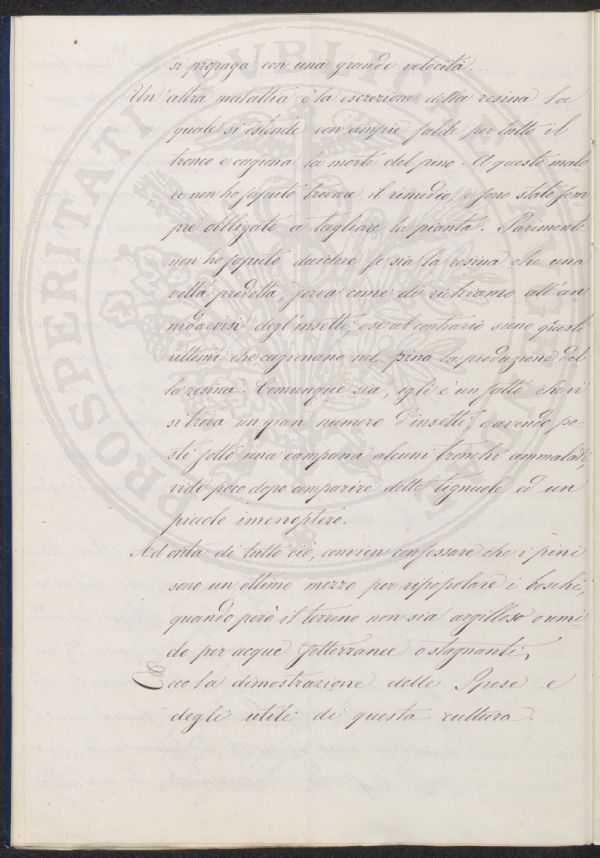 si propaga con una grande velocità.
Un' altra malattia è la escrezione della resina la
quale si estende con ampie falde per tutto il
tronco e cagiona la morte del pino. A questo malo
re non ho saputo trovare il rimedio, e sono stato sem=
pre obbligato a tagliare la pianta. Parimente
non ho saputo decidere se sia la resina che una
volta prodotta, serva come di richiamo all'an
nidarvisi degl'insetti o se al contrario siano questi
ultimi che cagionano nel pino la produzione del
la resina. Comunque sia, egli è un fatto che vi
si trova un gran numero d'insetti, e avendo po=
sti sotto una campana alcuni tronchi ammalati,
vidi poco dopo comparire delle tignuole ed un
piccolo imenoptero.
Ad onta di tutto ciò, convien confessare che i pini
sono un ottimo mezzo per ripopolare i boschi,
quando però il terreno non sia argilloso o umi=
do per acque sotterranee o stagnanti.
Ecco la dimostrazione delle spese e
degli utili di questa cultura.
PROSPERITATI
PUBLICAE